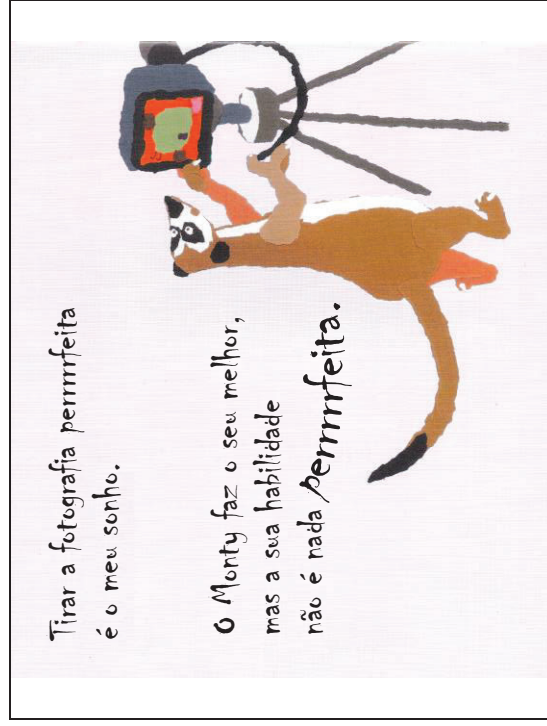 Tirar a fotografia perrrrrfeita
é o meu sonho.
O Monty faz o seu melhor,
mas a sua habilidade
não é nada perrrrrfeita.